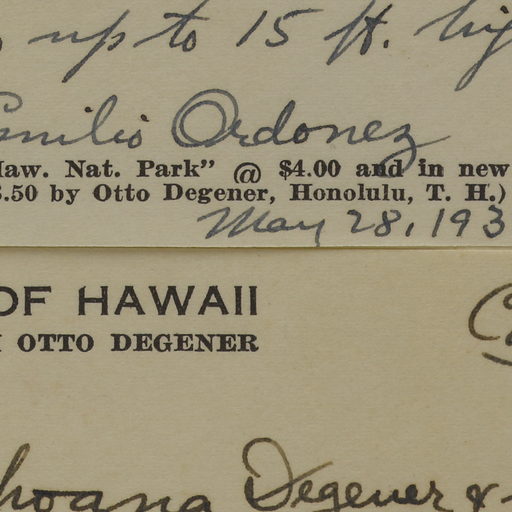 up to 15 ft. hig
Emilio Ordonez
Haw. Nat. Park" @ $4.00 and in new
3.50 by Otto Degener, Honolulu, T. H.)
May 28, 193
OF HAWAII
OTTO DEGENER
hoana Degener &